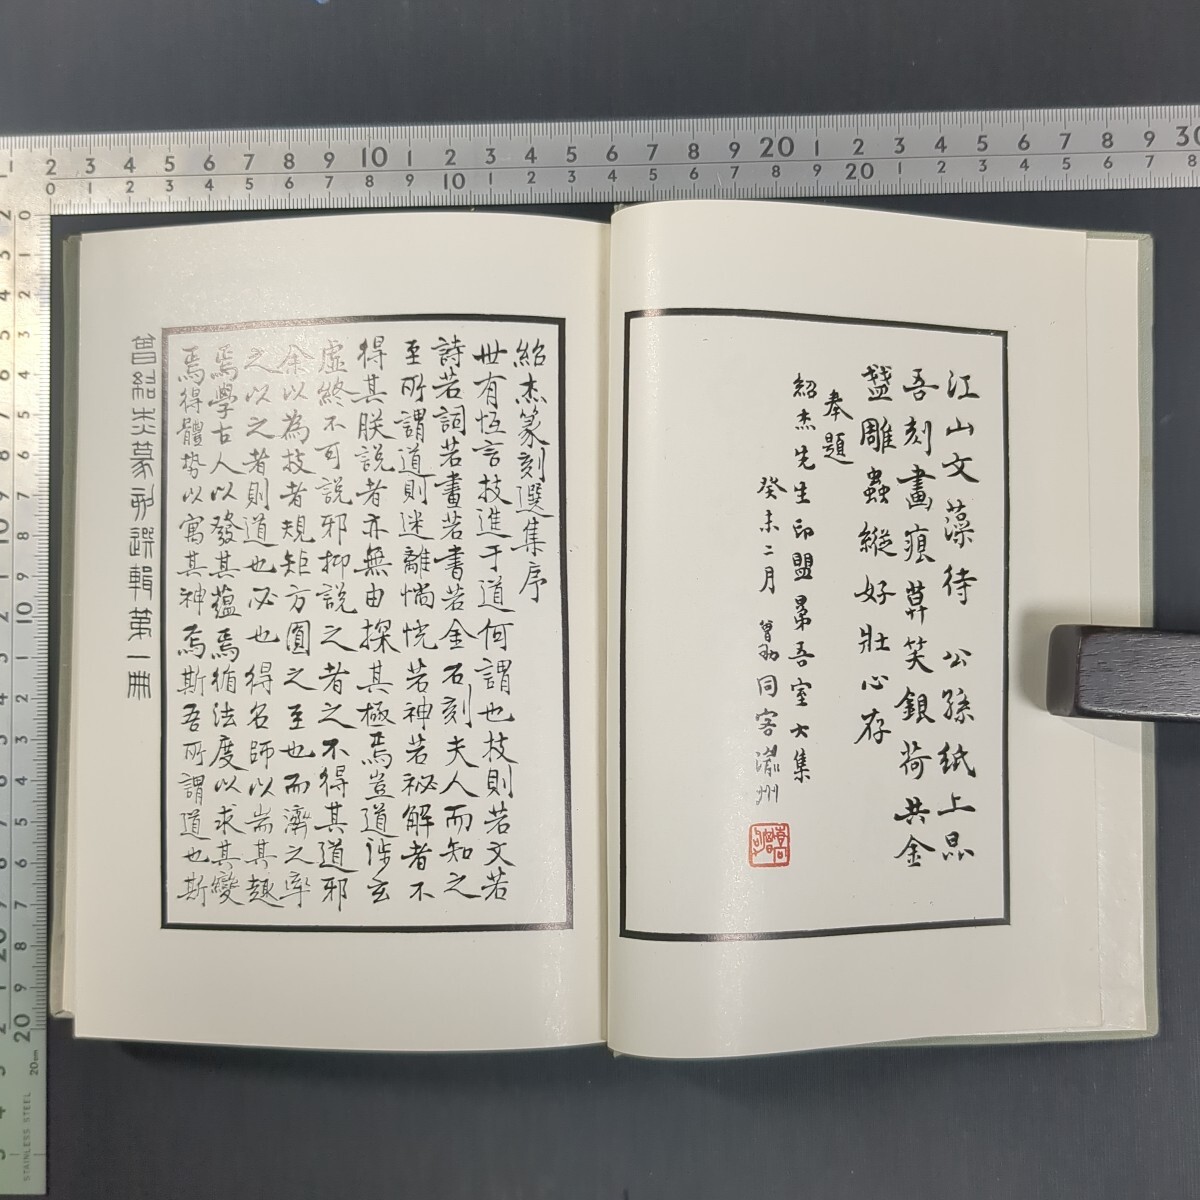 江山文藻待公孫紙上昂
吾刻畫痕莫笑銀荷共金
蠶雕蟲縱好壯心存
奉題
紹杰先生印盟昻吾室大集
癸未二月 曾劭同客瀛州
紹杰篆刻選集序
世有恆言技進于道何謂也技則若文若
詩若詞若畫若書若金石刻夫人而知之
至所謂道則迷離惝恍若神若祕解者不
得其朕說者亦無由探其極焉豈道涉玄
虛終不可說邪抑說之者之不得其道邪
余以為技者規矩方圓之至也而濟之率
之以之者則道也必也得名師以耑其趨
焉學古人以發其蘊焉循法度以求其變
焉得體勢以寓其神焉斯吾所謂道也斯
曾紹杰篆刻選輯第一冊
10 1 2 3 4 5 6 7 8 9 20 1 2 3 4 5 6 7 8 9 30
STAINLESS STEEL
20cm